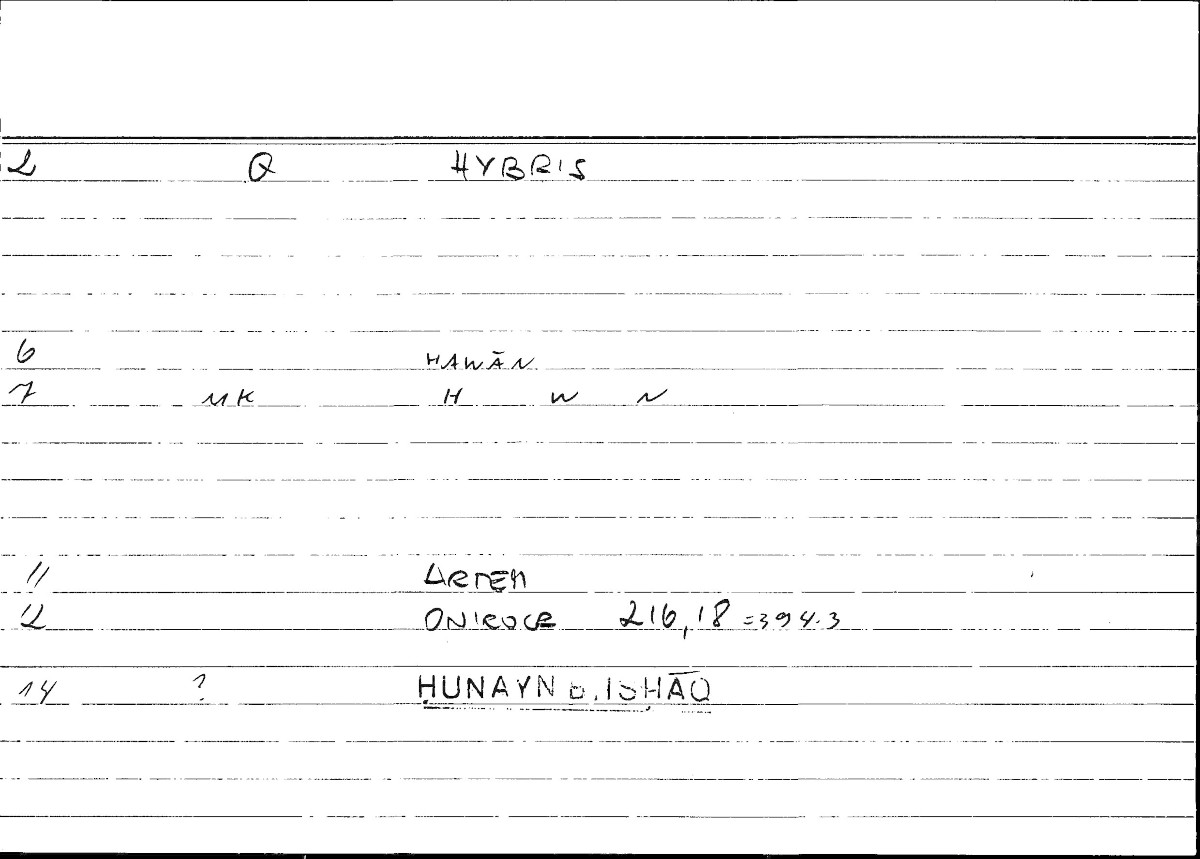 2 Q HYBRIS
6 HAWĀN
7 MK H W N
11 ARTEM
12 ONIROCR 216,18 =394.3
14 ? ḤUNAYN B. ISḤĀQ